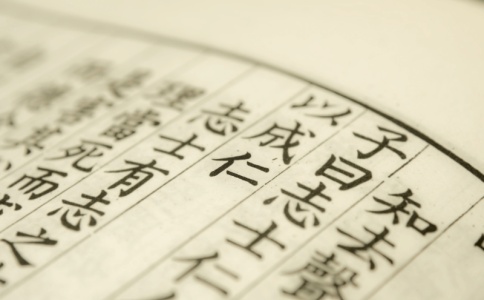 知去聲
子曰志士仁
以成仁
志士有志之
理當死而
是害其